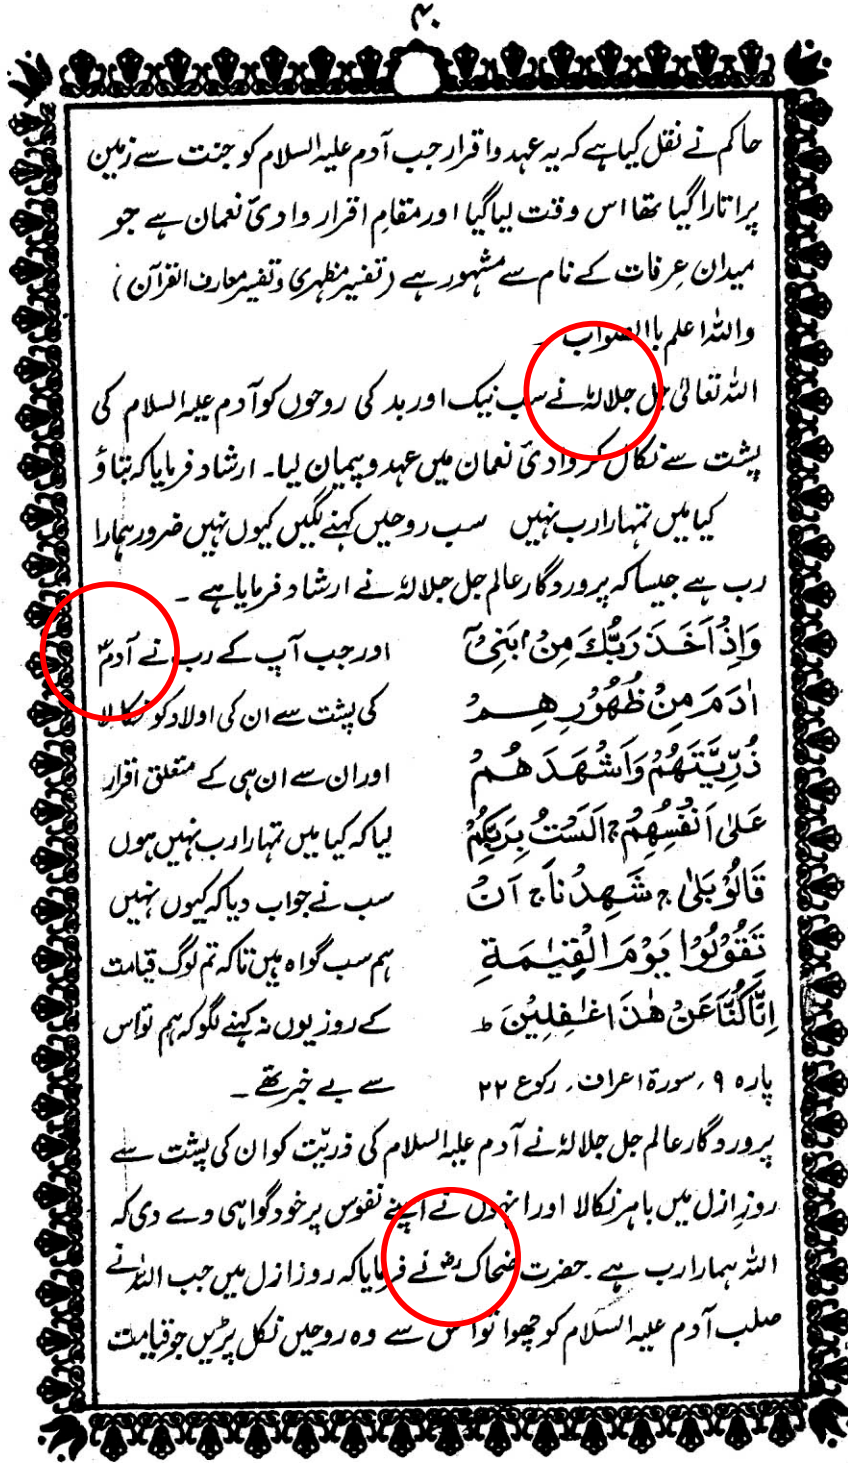 ۴۰
حاکم نے نقل کیا ہے کہ یہ عہد واقرار جب آدم علیہ السلام کو جنت سے زمین
پر اتارا گیا تھا اس وقت لیا گیا اور مقامِ اقرار وادیٔ نعمان ہے جو
میدان عرفات کے نام سے مشہور ہے (تفسیر مظہری و تفسیر معارف القرآن)
واللہ اعلم باالصواب ۔
اللہ تعالیٰ جل جلالہٗ نے سب نیک اور بد کی روحوں کو آدم علیہ السلام کی
پشت سے نکال کر وادیٔ نعمان میں عہد و پیمان لیا۔ ارشاد فرمایا کہ بتاؤ
کیا میں تمہارا رب نہیں سب روحیں کہنے لگیں کیوں نہیں ضرور ہمارا
رب ہے جیسا کہ پروردگار عالم جل جلالہٗ نے ارشاد فرمایا ہے ۔
وَاِذْ اَخَذَ رَبُّكَ مِنْۢ بَنِیْۤ
اٰدَمَ مِنْ ظُهُوْرِهِمْ
ذُرِّیَّتَهُمْ وَاَشْهَدَهُمْ
عَلٰۤی اَنْفُسِهِمْ ۚ اَلَسْتُ بِرَبِّكُمْ
قَالُوْ بَلٰی ۚ شَهِدْنَا ۚ اَنْ
تَقُوْلُوْا یَوْمَ الْقِیٰمَةِ
اِنَّا كُنَّا عَنْ هٰذَا غٰفِلِیْنَ ط
پارہ ۹، سورۃ اعراف، رکوع ۲۲
اور جب آپ کے رب نے آدمؑ
کی پشت سے ان کی اولاد کو نکالا
اور ان سے ان ہی کے متعلق اقرار
لیا کہ کیا میں تمہارا رب نہیں ہوں
سب نے جواب دیا کہ کیوں نہیں
ہم سب گواہ ہیں تاکہ تم لوگ قیامت
کے روز یوں نہ کہنے لگو کہ ہم تو اس
سے بے خبر تھے ۔
پروردگار عالم جل جلالہٗ نے آدم علیہ السلام کی ذریّت کو ان کی پشت سے
روزِ ازل میں باہر نکالا اور انہوں نے اپنے نفوس پر خود گواہی دے دی کہ
اللہ ہمارا رب ہے ۔ حضرت ضحاکؓ نے فرمایا کہ روز ازل میں جب اللہ نے
صلب آدم علیہ السلام کو چھوا تو اس سے وہ روحیں نکل پڑیں جو قیامت